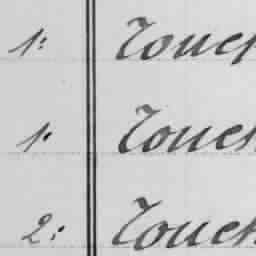 1: Touch
1. Touch
2: Touch